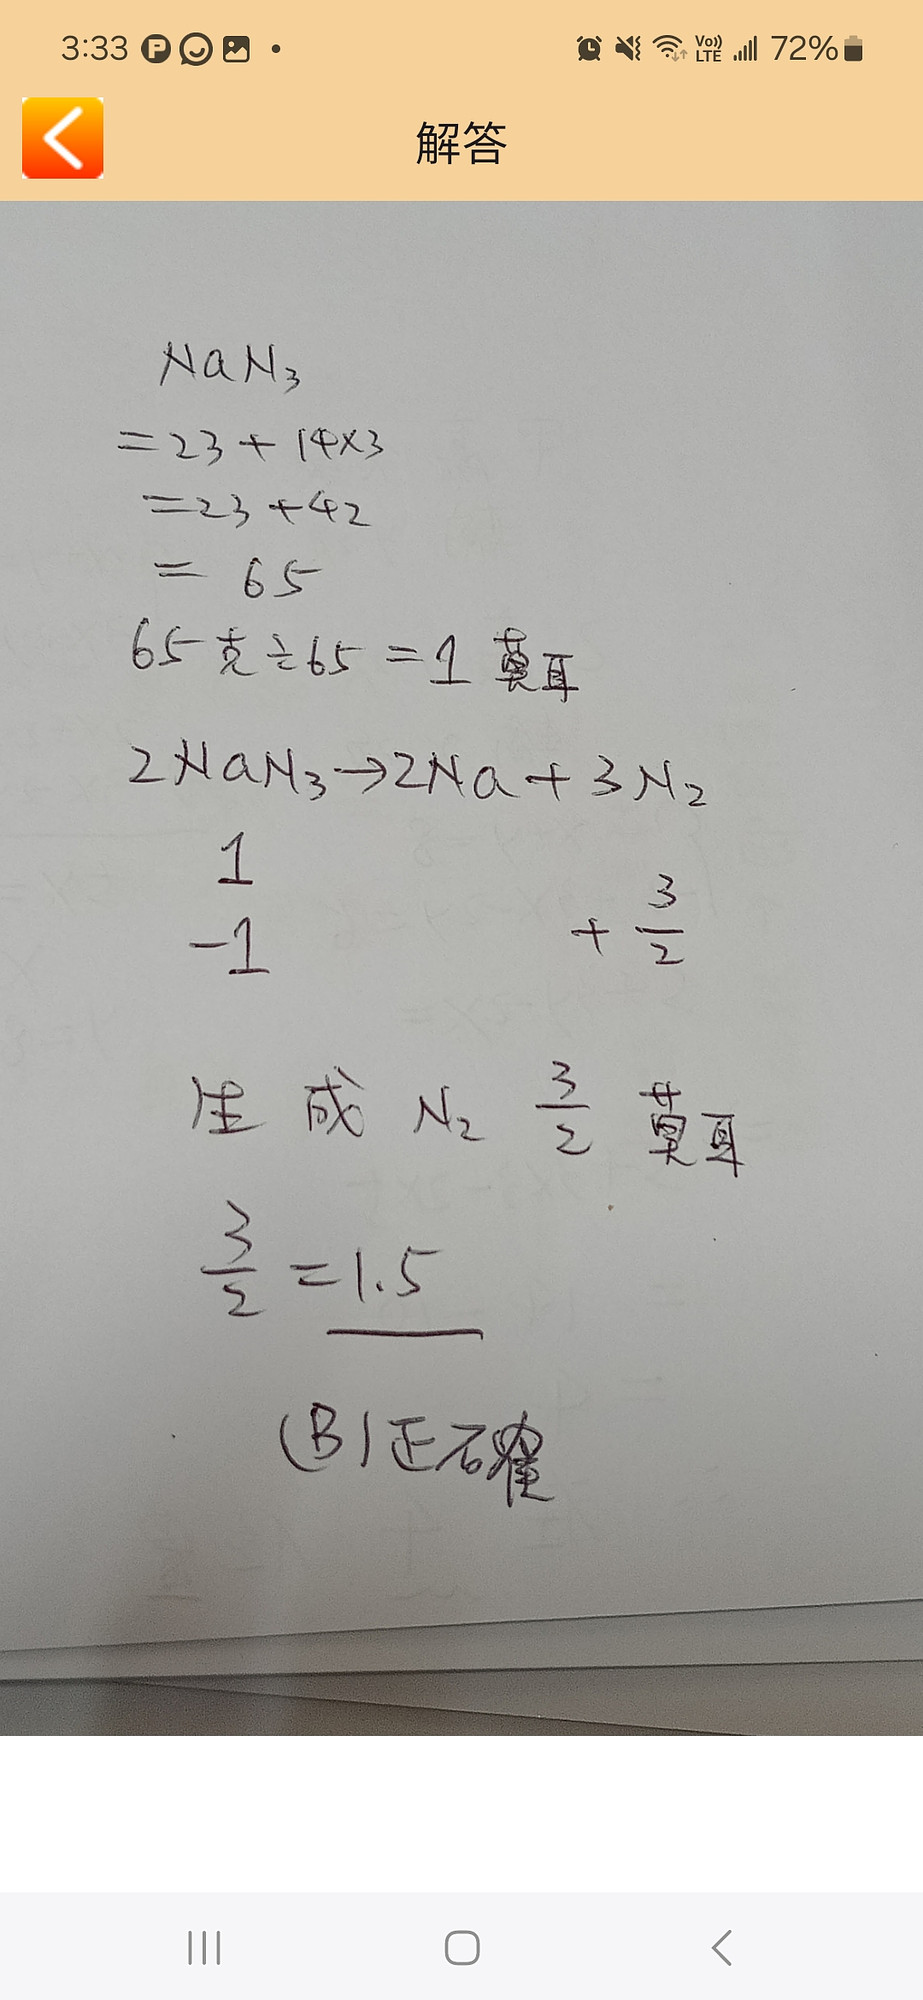 3:33
Vo))
LTE
72%
解答
NaN₃
=23+14×3
=23+42
= 65
65克÷65=1莫耳
2NaN₃→2Na+3N₂
1
-1 + 3/2
生成 N₂ 3/2 莫耳
3/2 =1.5
(B)正確